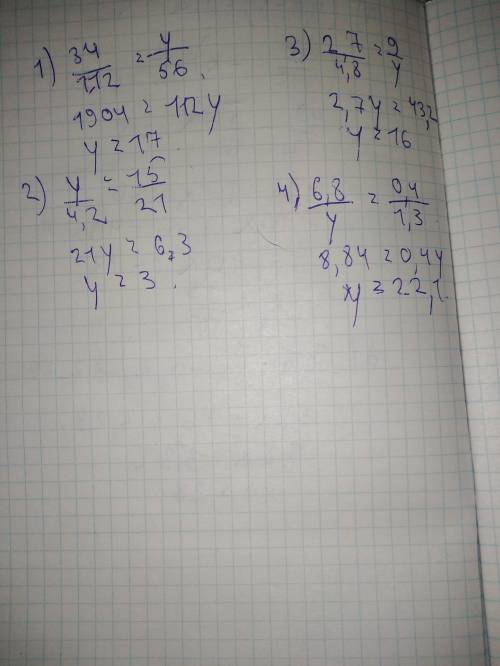 1) 34/112 = y/56
1904 = 112y
y = 17
2) y/4,2 = 15/21
21y = 6,3
y = 3
3) 2,7/4,8 = 9/y
2,7y = 43,2
y = 16
4) 6,8/y = 0,4/1,3
8,84 = 0,4y
y = 22,1